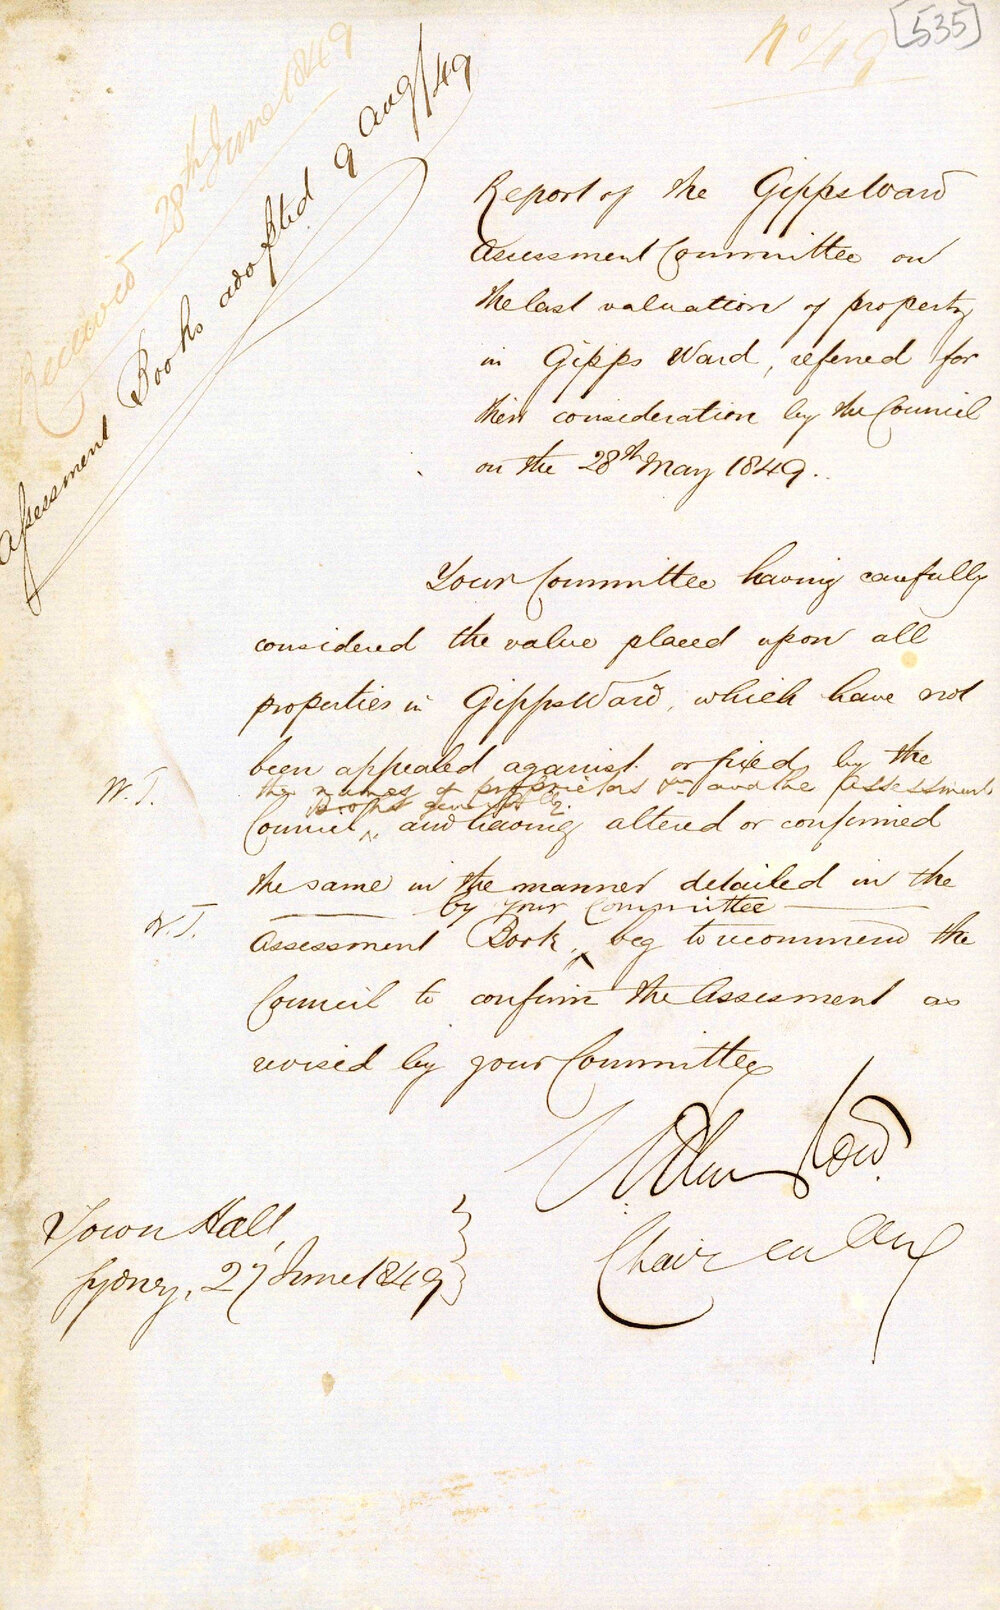 [535]
No 49
Received 28th June 1849
Assessment Books adopted 9 Aug/49
Report of the Gipps Ward
Assessment Committee on
the last valuation of property
in Gipps Ward, referred for
their consideration by the Council
on the 28th May 1849.
Your Committee having carefully
considered the value placed upon all
properties in Gipps Ward, which have not
been appealed against or fixed by the
W.T. the names of proprietors &c and the Assessment
Books generally
Council, and having altered or confirmed
the same in the manner detailed in the
by your Committee
W.T. Assessment Book, beg to recommend the
Council to confirm the Assesment as
revised by your Committee
Chairman
Town Hall,
Sydney, 27 June 1849